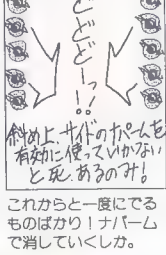 どどどーっ!!
斜め上、サイドのナパームを
有効に使っていかない
と死あるのみ!
これからと一度にでる
ものばかり!ナパーム
で消していくしか。